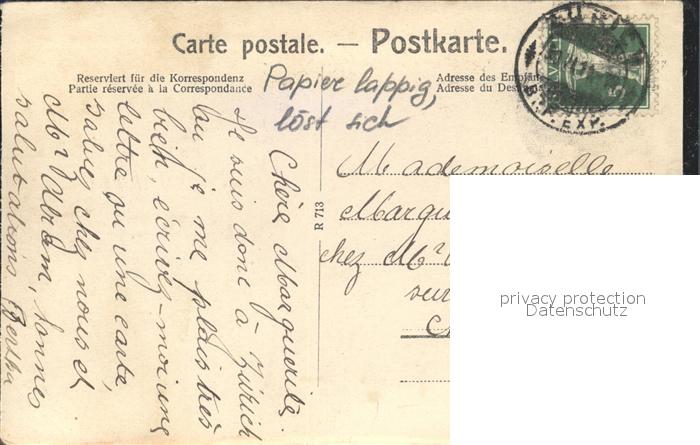 Carte postale. — Postkarte.
Reserviert für die Korrespondenz
Partie réservée à la Correspondance
Adresse des Empfäng
Adresse du Des
Papier lappig,
löst sich
B.P. EXP.
5
R 713
Mademoiselle
Margu
chez Mr
sur
privacy protection
Datenschutz
Chère Marguerite.
Je suis donc à Zürich
ou je me plais très
bien, écrivez-moi une
lettre ou une carte,
saluez chez nous et
Mr Abram, bonnes
salutations Bertha